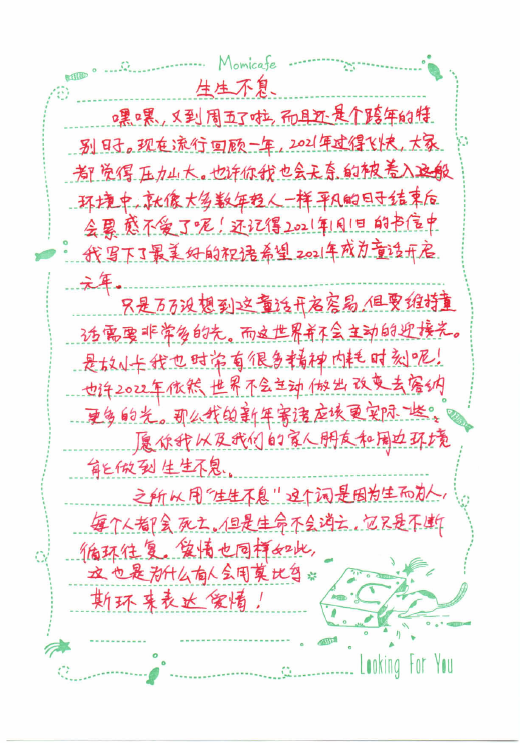 Momicafe
生生不息、
嘿嘿、又到周五了啦,而且还是个跨年的特
别日子。现在流行回顾一年,2021年过得飞快,大家
都觉得压力山大。也许你我也会无奈的被卷入这般
环境中,就像大多数年轻人一样平凡的日子结束后
会累感不爱了呢!还记得2021年1月1日的书信中
我写下了最美好的祝语希望2021年成为童话开启
元年。
只是万万没想到这童话开启容易,但要维持童
话需要非常多的光。而这世界并不会主动的迎接光。
是故小卡我也时常有很多精神内耗时刻呢!
也许2022年依然世界不会主动做出改变去容纳
更多的光。那么我的新年寄语应该更实际一些。
愿你我以及我们的家人朋友和周边环境
能做到生生不息、
之所以用“生生不息”这个词是因为生而为人,
每个人都会死去。但是生命不会消云。它只是不断
循环往复。爱情也同样如此,
这也是为什么有人会用莫比乌
斯环来表达爱情!
Looking For You